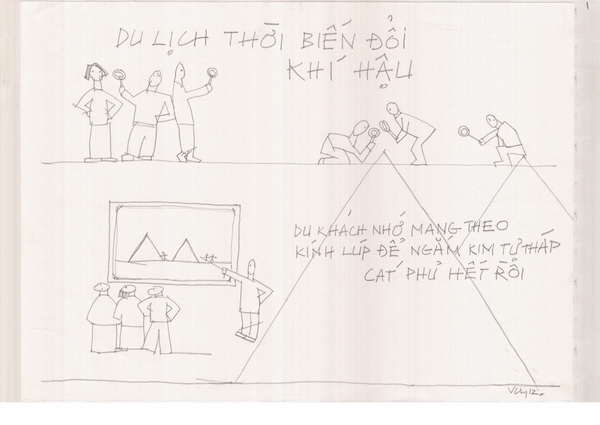 DU LỊCH THỜI BIẾN ĐỔI
KHÍ HẬU
DU KHÁCH NHỚ MANG THEO
KÍNH LÚP ĐỂ NGẮM KIM TỰ THÁP
CÁT PHỦ HẾT RỒI